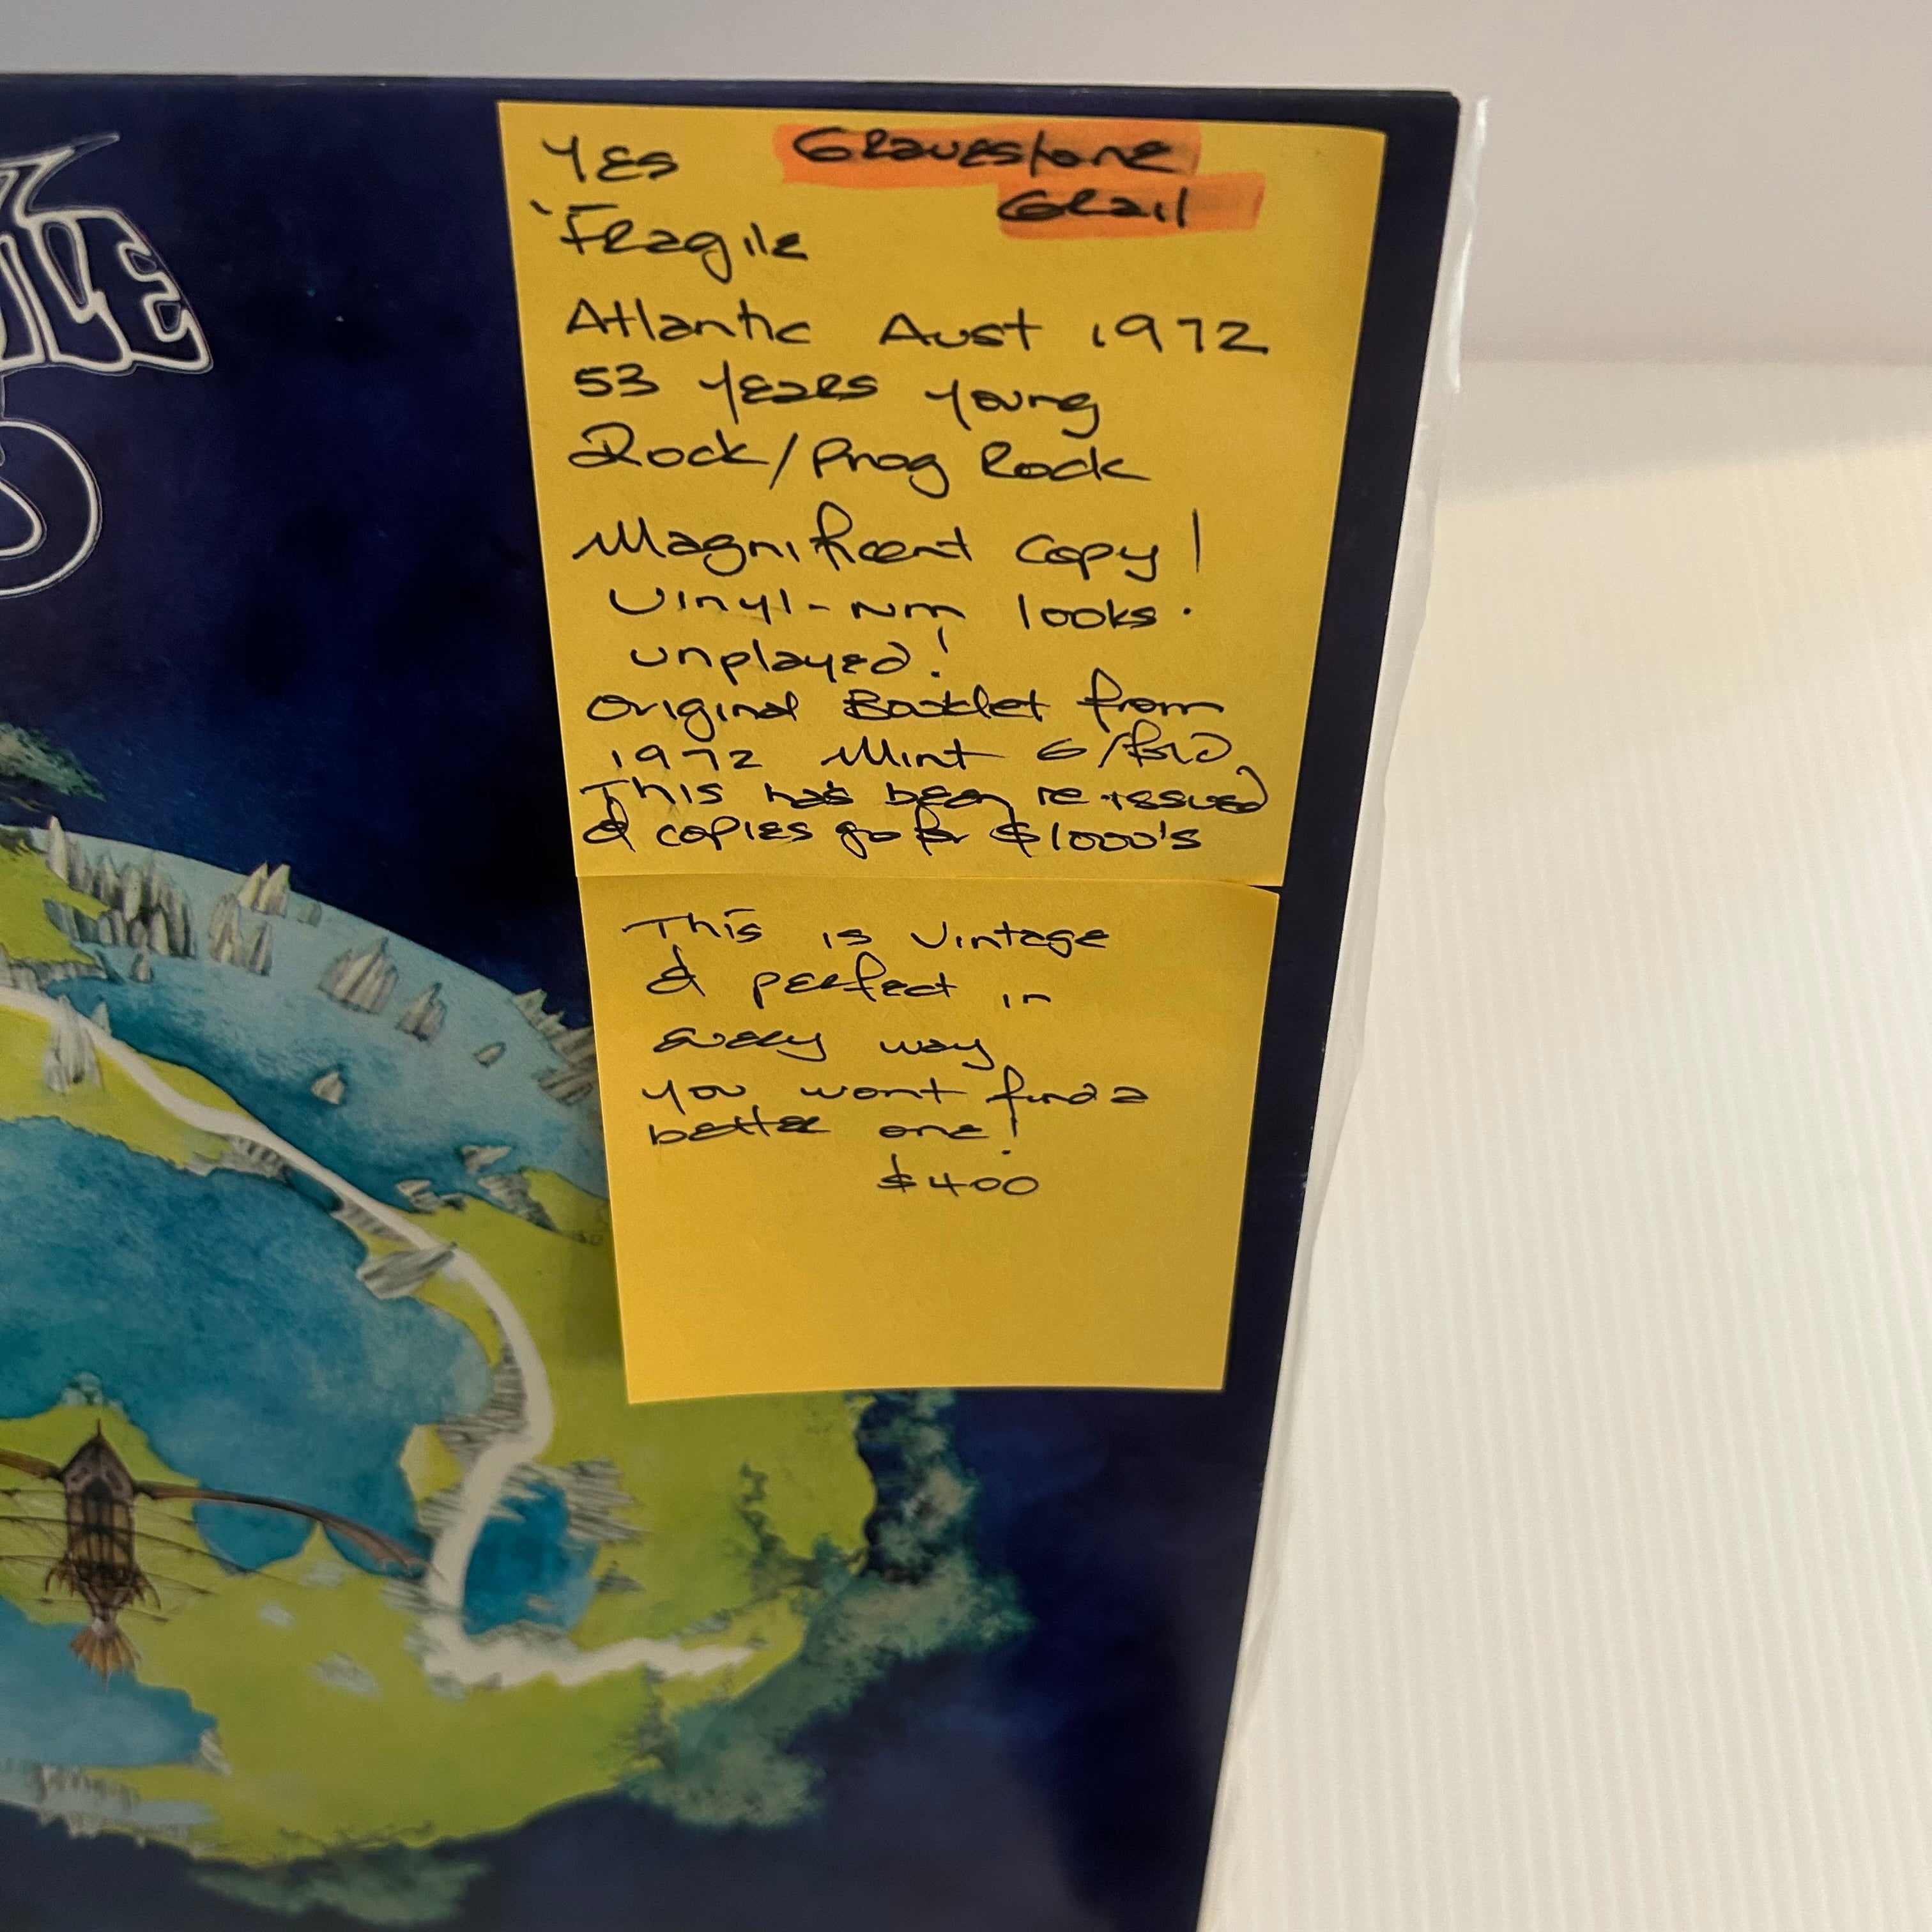 YES Gravestone
Grail
'Fragile
Atlantic Aust 1972
53 years young
Rock/Prog Rock
Magnificent Copy!
Vinyl-NM looks.
unplayed!
Original Booklet from
1972 Mint G/fold
This has been re-issued
& copies go for $1000's
This is vintage
& perfect in
every way
you wont find a
better one!
$400